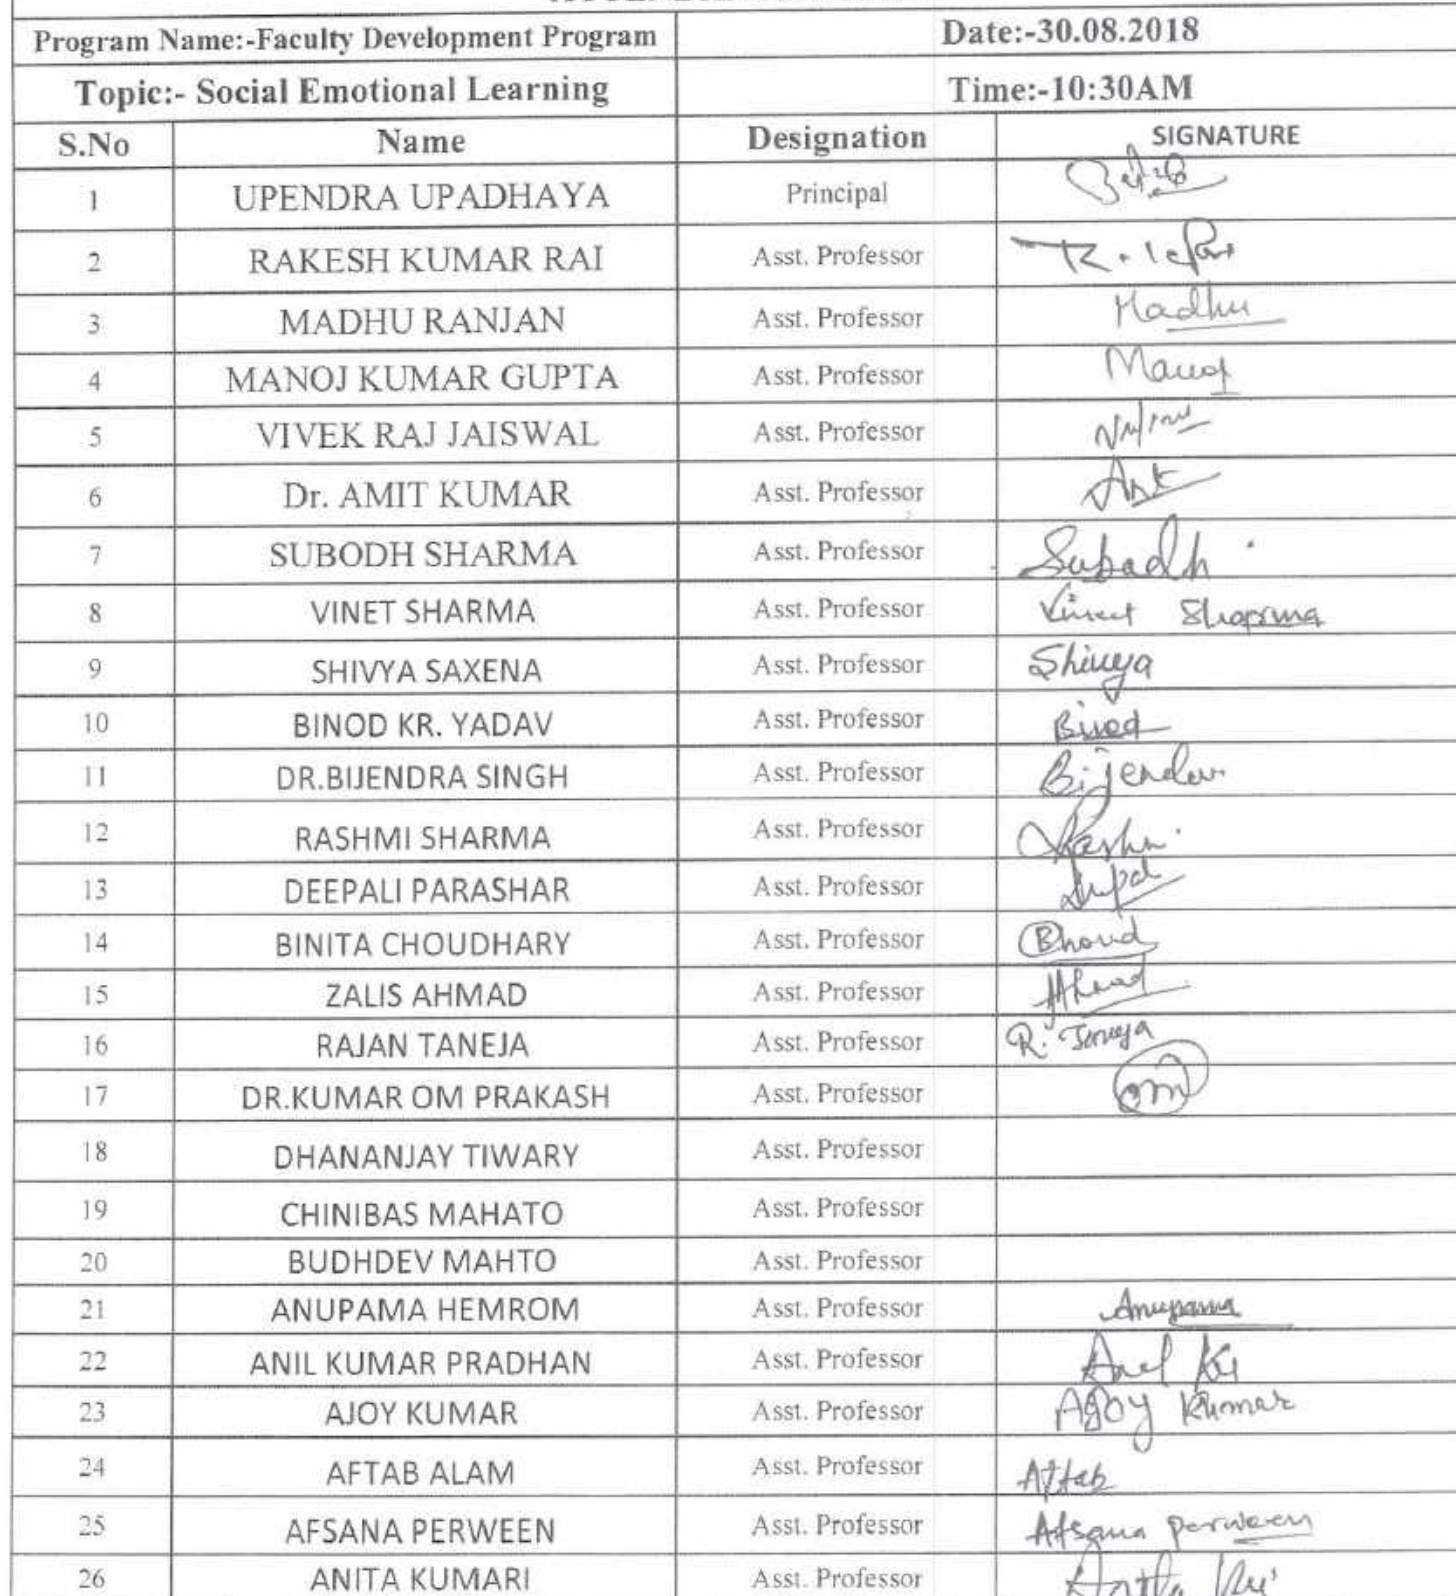 Program Name:-Faculty Development Program Date:-30.08.2018
Topic:- Social Emotional Learning Time:-10:30AM
S.No Name Designation SIGNATURE
1 UPENDRA UPADHAYA Principal
2 RAKESH KUMAR RAI Asst. Professor
3 MADHU RANJAN Asst. Professor Madhu
4 MANOJ KUMAR GUPTA Asst. Professor Manoj
5 VIVEK RAJ JAISWAL Asst. Professor
6 Dr. AMIT KUMAR Asst. Professor
7 SUBODH SHARMA Asst. Professor Subodh
8 VINET SHARMA Asst. Professor Vineet Sharma
9 SHIVYA SAXENA Asst. Professor Shivya
10 BINOD KR. YADAV Asst. Professor Binod
11 DR.BIJENDRA SINGH Asst. Professor Bijendar
12 RASHMI SHARMA Asst. Professor Rashmi
13 DEEPALI PARASHAR Asst. Professor
14 BINITA CHOUDHARY Asst. Professor
15 ZALIS AHMAD Asst. Professor Ahmad
16 RAJAN TANEJA Asst. Professor R. Taneja
17 DR.KUMAR OM PRAKASH Asst. Professor om
18 DHANANJAY TIWARY Asst. Professor
19 CHINIBAS MAHATO Asst. Professor
20 BUDHDEV MAHTO Asst. Professor
21 ANUPAMA HEMROM Asst. Professor Anupama
22 ANIL KUMAR PRADHAN Asst. Professor Anil Kr
23 AJOY KUMAR Asst. Professor Ajoy Kumar
24 AFTAB ALAM Asst. Professor Aftab
25 AFSANA PERWEEN Asst. Professor Afsana perween
26 ANITA KUMARI Asst. Professor